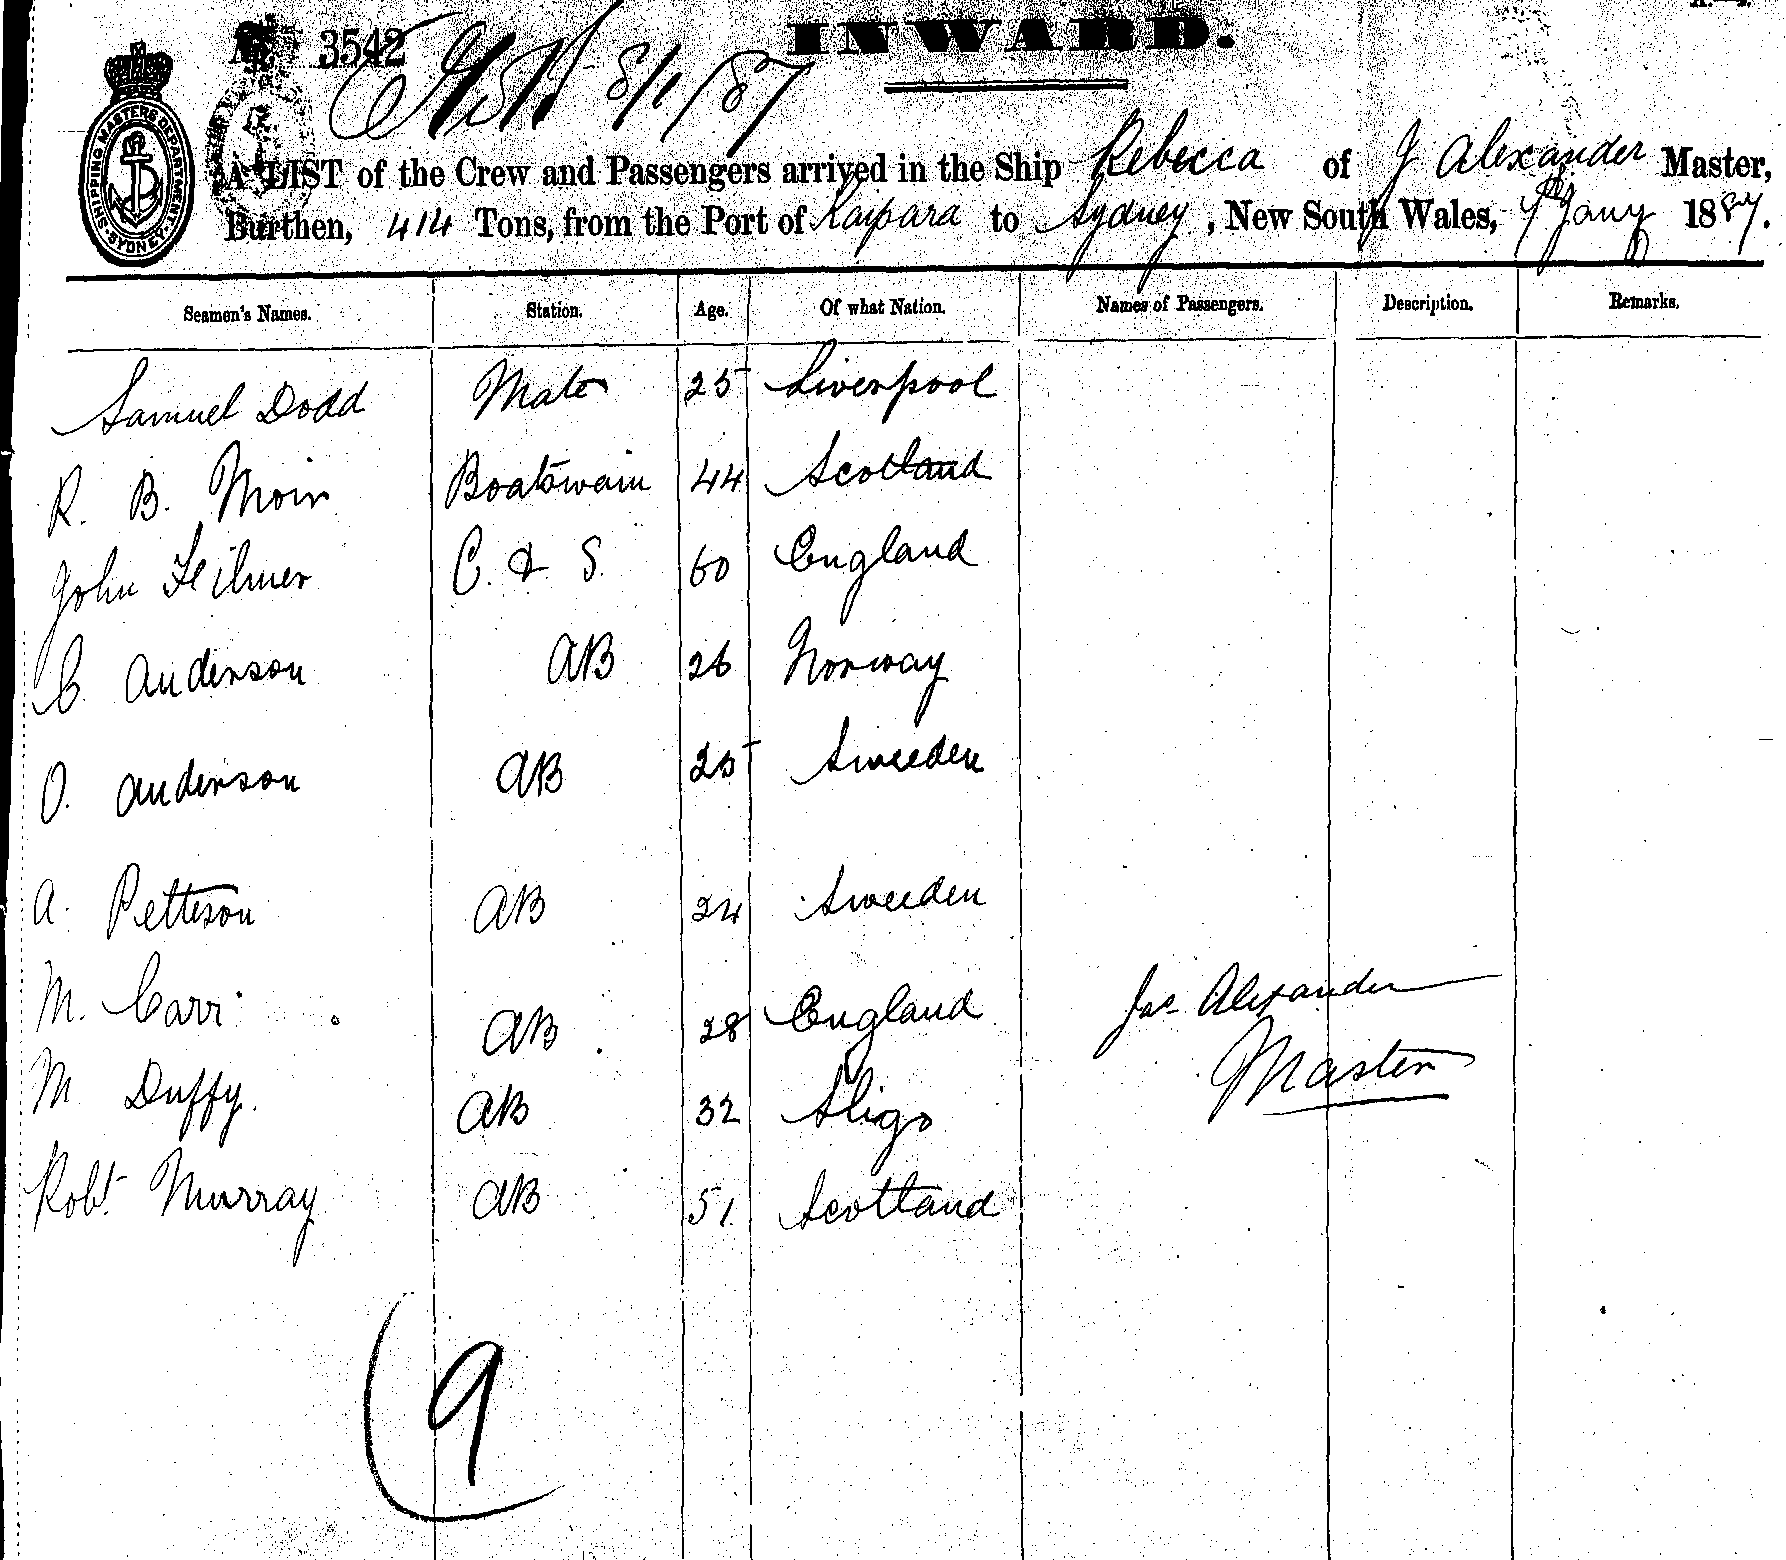 3542
INWARD.
8/1/87
SHIPPING MASTERS DEPARTMENT SYDNEY
A LIST of the Crew and Passengers arrived in the Ship Rebecca of J Alexander Master,
Burthen, 414 Tons, from the Port of Kaipara to Sydney, New South Wales, 7th Jany 1887.
Seamen's Names. Station. Age. Of what Nation. Names of Passengers. Description. Remarks.
Samuel Dodd Mate 25 Liverpool
R. B. Moir Boatswain 44 Scotland
John Filmer C. & S. 60 England
C. Anderson AB 26 Norway
O. Anderson AB 25 Sweeden
A. Petteson AB 24 Sweeden
M. Carr AB 28 England
Jas Alexander
Master
M Duffy. AB 32 Sligo
Robt Murray AB 51 Scotland
9